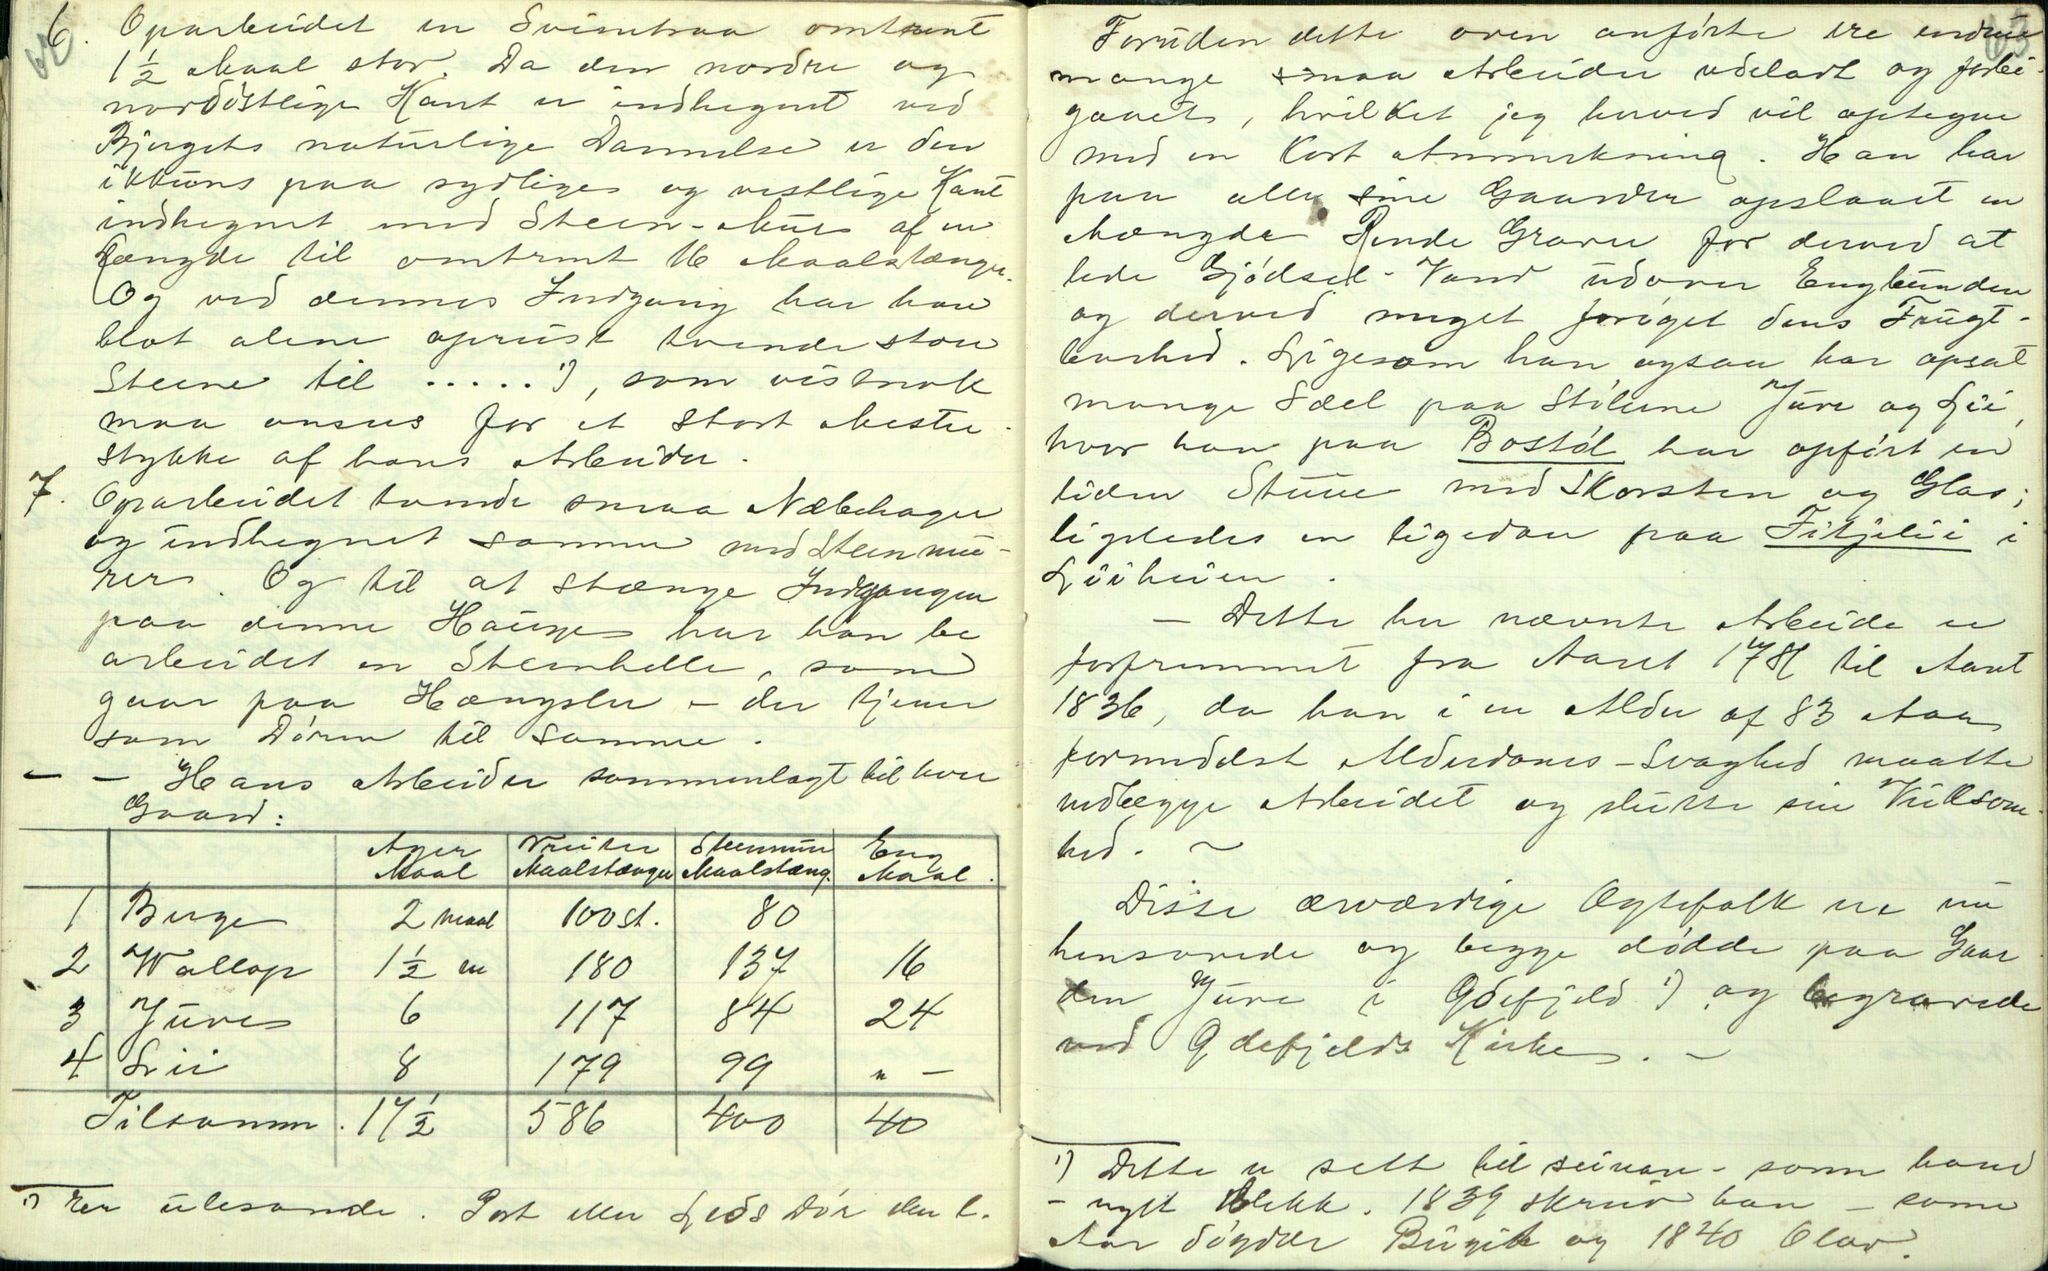 62
6. Oparbeidet en Svintraa omtrent
1 1/2 Maal stor. Da den nordre og
nordöstlige Kant er indhegnet ved
Bjergets naturlige Dannelse er den
ikkuns paa sydlige og vestlige Kant
indhegnet med Steen-Muur af en
Længde til omtrent 16 Maalstænger.
Og ved dennes Indgang har han
blot alene opreist tvende store
Steene til .....1), som vistnok
maa ansees for et stort Mester-
stykke af hans Arbeider.
7. Oparbeidet tvende smaa Næbehager
og indhegnet samme med Steenmu-
rer. Og til at stænge Indgangen
paa denne Hauge har han be
arbeidet en Steenhelle, som
gaar paa Hængsler – der tjener
som Dören til samme.
– – Hans Arbeider sammenlagt til hver
Gaard:
Ager Maal | Veiter Maalstænger | Steenmuur Maalstæng. | Eng Maal.
1 Berge 2 maal 100 st. 80
2 Wallop 1 1/2 m 180 137 16
3 Juve 6 117 84 24
4 Lii 8 179 99 " –
Tilsamm. 17 1/2 586 400 40
1) Her ulesande. Port eller Leds Dör ell. l.
63
Foruden dette oven anförte ere endnu
mange smaa Arbeider udeladt og forbi-
gaaet, hvilket jeg herved vil optegne
med en Kort Anmerkning. Han har
paa alle sine Gaarder opslaaet en
Mængde Rende Graver for derved at
lede Gjödsel-Vand udover Engbunden
og derved meget foröget dens Frugt-
barhed. Ligesom han ogsaa har opsat
mange Sæl paa Stölene Juve og Lii,
hvor han paa Bostöl har opfört en
liden Stuue med Skorsten og Glas;
ligeledes en ligedan paa Fitjelii i
Liiheien.
– Dette her nævnte Arbeide er
forfremmet fra Aaret 1781 til Aaret
1836, da han i en Alder af 83 Aar
formedelst Alderdoms-Svaghed maatte
nedlægge Arbeidet og slutte sin Virksom-
hed. ~
Disse ærværdige Egtefolk ere nu
hensovede og begge dödde paa Gaar
den Juve i Gdefjeld 1) og begravede
ved Gdefjelds Kirke. –
1) Dette er sett til seinare – som hand
– nytt Blekk. 1839 skreiv han – same
Aar döydde Birgit og 1840 Olav.